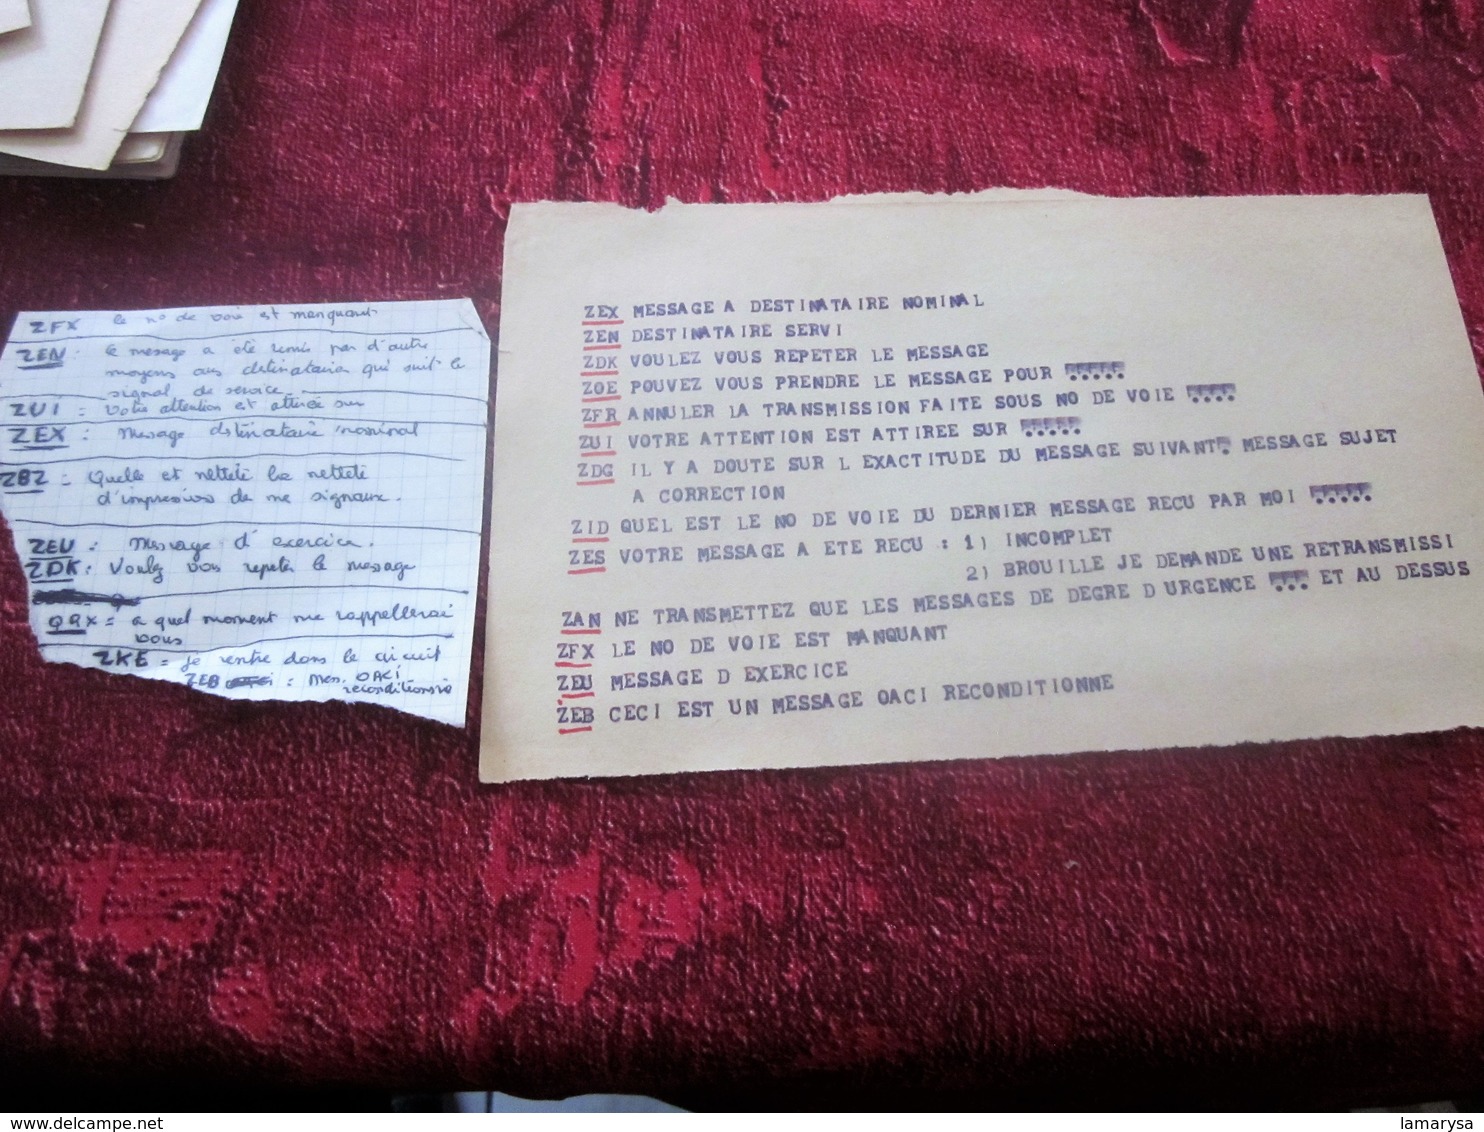 ZFX le no de voie est manquant
ZEN : le message a été remis par d'autre
moyens aux destinataires qui suit le
signal de service
ZUI = Votre attention est attirée sur
ZEX : Message destinataire nominal
ZBZ = Quelle est netteté la netteté
d'impression de me signaux.
ZEU : Message d'exercice.
ZDK : Voulez vous repeter le message
QQX = a quel moment me rappellerai
vous
ZKE = je rentre dans le circuit
ZEB : Mes. OACI
reconditionné
ZEX MESSAGE A DESTINATAIRE NOMINAL
ZEN DESTINATAIRE SERVI
ZDK VOULEZ VOUS REPETER LE MESSAGE
ZOE POUVEZ VOUS PRENDRE LE MESSAGE POUR .....
ZFR ANNULER LA TRANSMISSION FAITE SOUS NO DE VOIE ....
ZUI VOTRE ATTENTION EST ATTIREE SUR .....
ZDG IL Y A DOUTE SUR L EXACTITUDE DU MESSAGE SUIVANT. MESSAGE SUJET
A CORRECTION
ZID QUEL EST LE NO DE VOIE DU DERNIER MESSAGE RECU PAR MOI .....
ZES VOTRE MESSAGE A ETE RECU : 1) INCOMPLET
2) BROUILLE JE DEMANDE UNE RETRANSMISSI
ZAN NE TRANSMETTEZ QUE LES MESSAGES DE DEGRE D URGENCE ... ET AU DESSUS
ZFX LE NO DE VOIE EST MANQUANT
ZEU MESSAGE D EXERCICE
ZEB CECI EST UN MESSAGE OACI RECONDITIONNE
delcampe.net
lamarysa